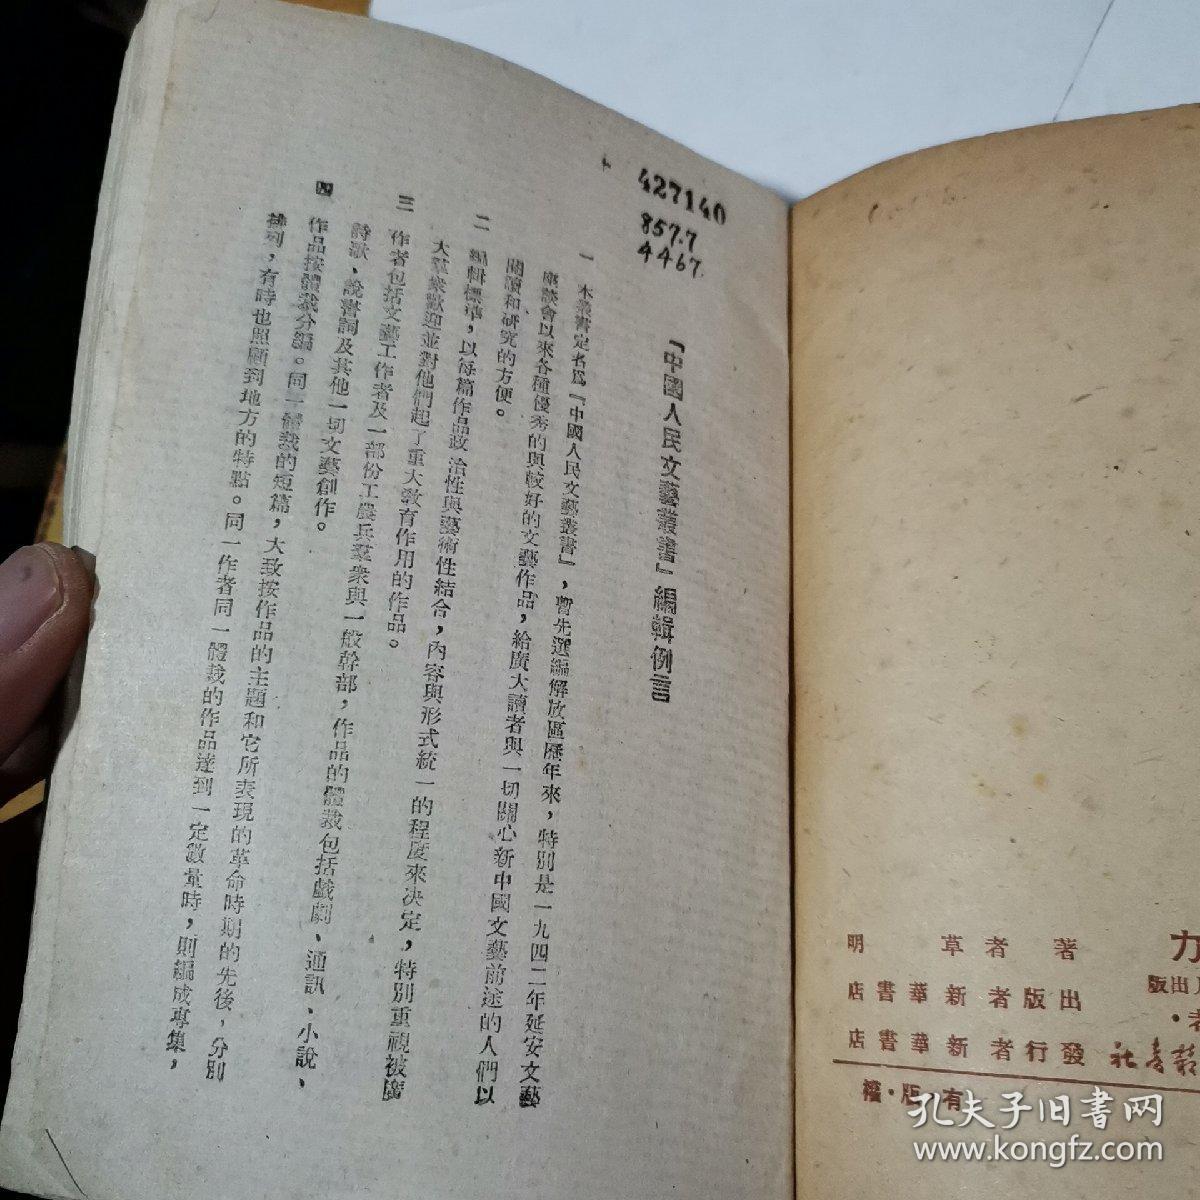 427140
857.7
4467
「中國人民文藝叢書」編輯例言
一 本叢書定名爲『中國人民文藝叢書』，暫先選編解放區歷年來，特別是一九四二年延安文藝
座談會以來各種優秀的與較好的文藝作品，給廣大讀者與一切關心新中國文藝前途的人們以
閱讀和研究的方便。
二 編輯標準，以每篇作品政治性與藝術性結合，內容與形式統一的程度來决定，特別重視被廣
大羣衆歡迎並對他們起了重大教育作用的作品。
三 作者包括文藝工作者及一部份工農兵羣衆與一般幹部，作品的體裁包括戲劇、通訊、小說、
詩歌、說書詞及其他一切文藝創作。
四 作品按體裁分編。同一體裁的短篇，大致按作品的主題和它所表現的革命時期的先後，分別
排列，有時也照顧到地方的特點。同一作者同一體裁的作品達到一定數量時，則編成專集，
力
明 草 者 著
店書華新 者版出
店書華新 者行發
版出
社
權·版·有
孔夫子旧书网
www.kongfz.com